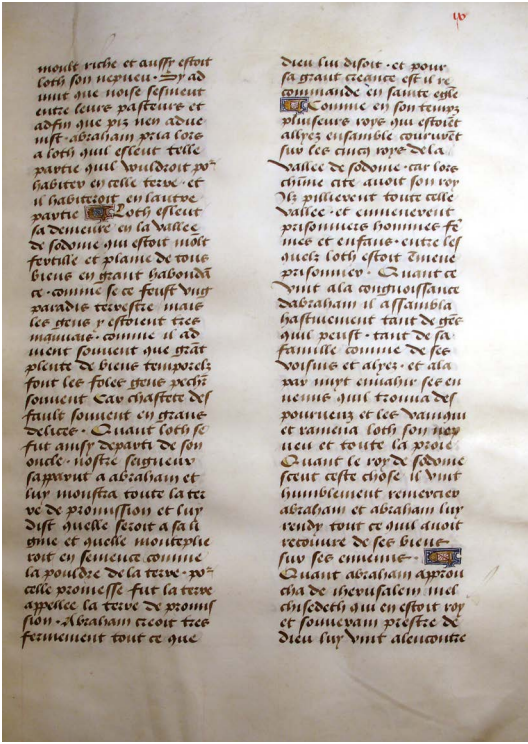 moult riche et aussy estoit
loth son nepueu · Sy ad
uint que noise sesmeut
entre leurs pasteurs et
adfin que piz nen adue
nist · abraham pria lors
a loth quil esleut telle
partie quil vouldroit po᷑
habiter en celle terre · et
il habiteroit en lautre
partie Loth esleut
sa demeure en la vallee
de sodome qui estoit molt
fertille et plaine de tous
biens en grant habondā
ce · comme se ce feust vng
paradis terrestre mais
les gens y estoient tres
mauuais · comme il ad
uient souuent que grāt
plente de biens temporelz
font les foles gens pechr̄
souuent Car chastete des
fault souuent en grans
delices · Quant loth se
fut ainsy departi de son
oncle · nostre seigneur
sapparut a abraham et
luy monstra toute la ter
re de promission et luy
dist quelle seroit a sa li
gnie et quelle monteplie
roit en semence comme
la pouldre de la terre · po᷑
celle promesse fut la terre
appellee la terre de promis
sion · Abraham creoit tres
fermement tout ce que
dieu lui disoit · et pour
sa grant creance est il re
commande en sainte egle
Comme en son temps
pluiseurs roys qui estoiēt
alyez ensamble coururēt
sur les cincq roys de la
vallee de sodome · car lors
chūne cite auoit son roy
Ilz pillierent toute celle
vallee · et enmenerent
prisonniers hommes fē
mes et enfans · entre les
quelz loth estoit ēmene
prisonnier · Quant ce
vint a la congnoissance
dabraham il assambla
hastiuement tant de gēs
quil peust · tant de sa
famille comme de ses
voisins et alyez · et ala
par nuyt enuahir ses en
nemis quil trouua des
pourueuz et les vainqui
et ramena loth son nep
ueu et toute la proie
Quant le roy de sodome
sceut ceste chose il vint
humblement remercier
abraham et abraham luy
rendy tout ce quil auoit
recouure de ses biens
sur ses ennemis ·
Quant abraham approu
cha de iherusalem mel
chisedeth qui en estoit roy
et souuerain prestre de
dieu luy vint alencontre